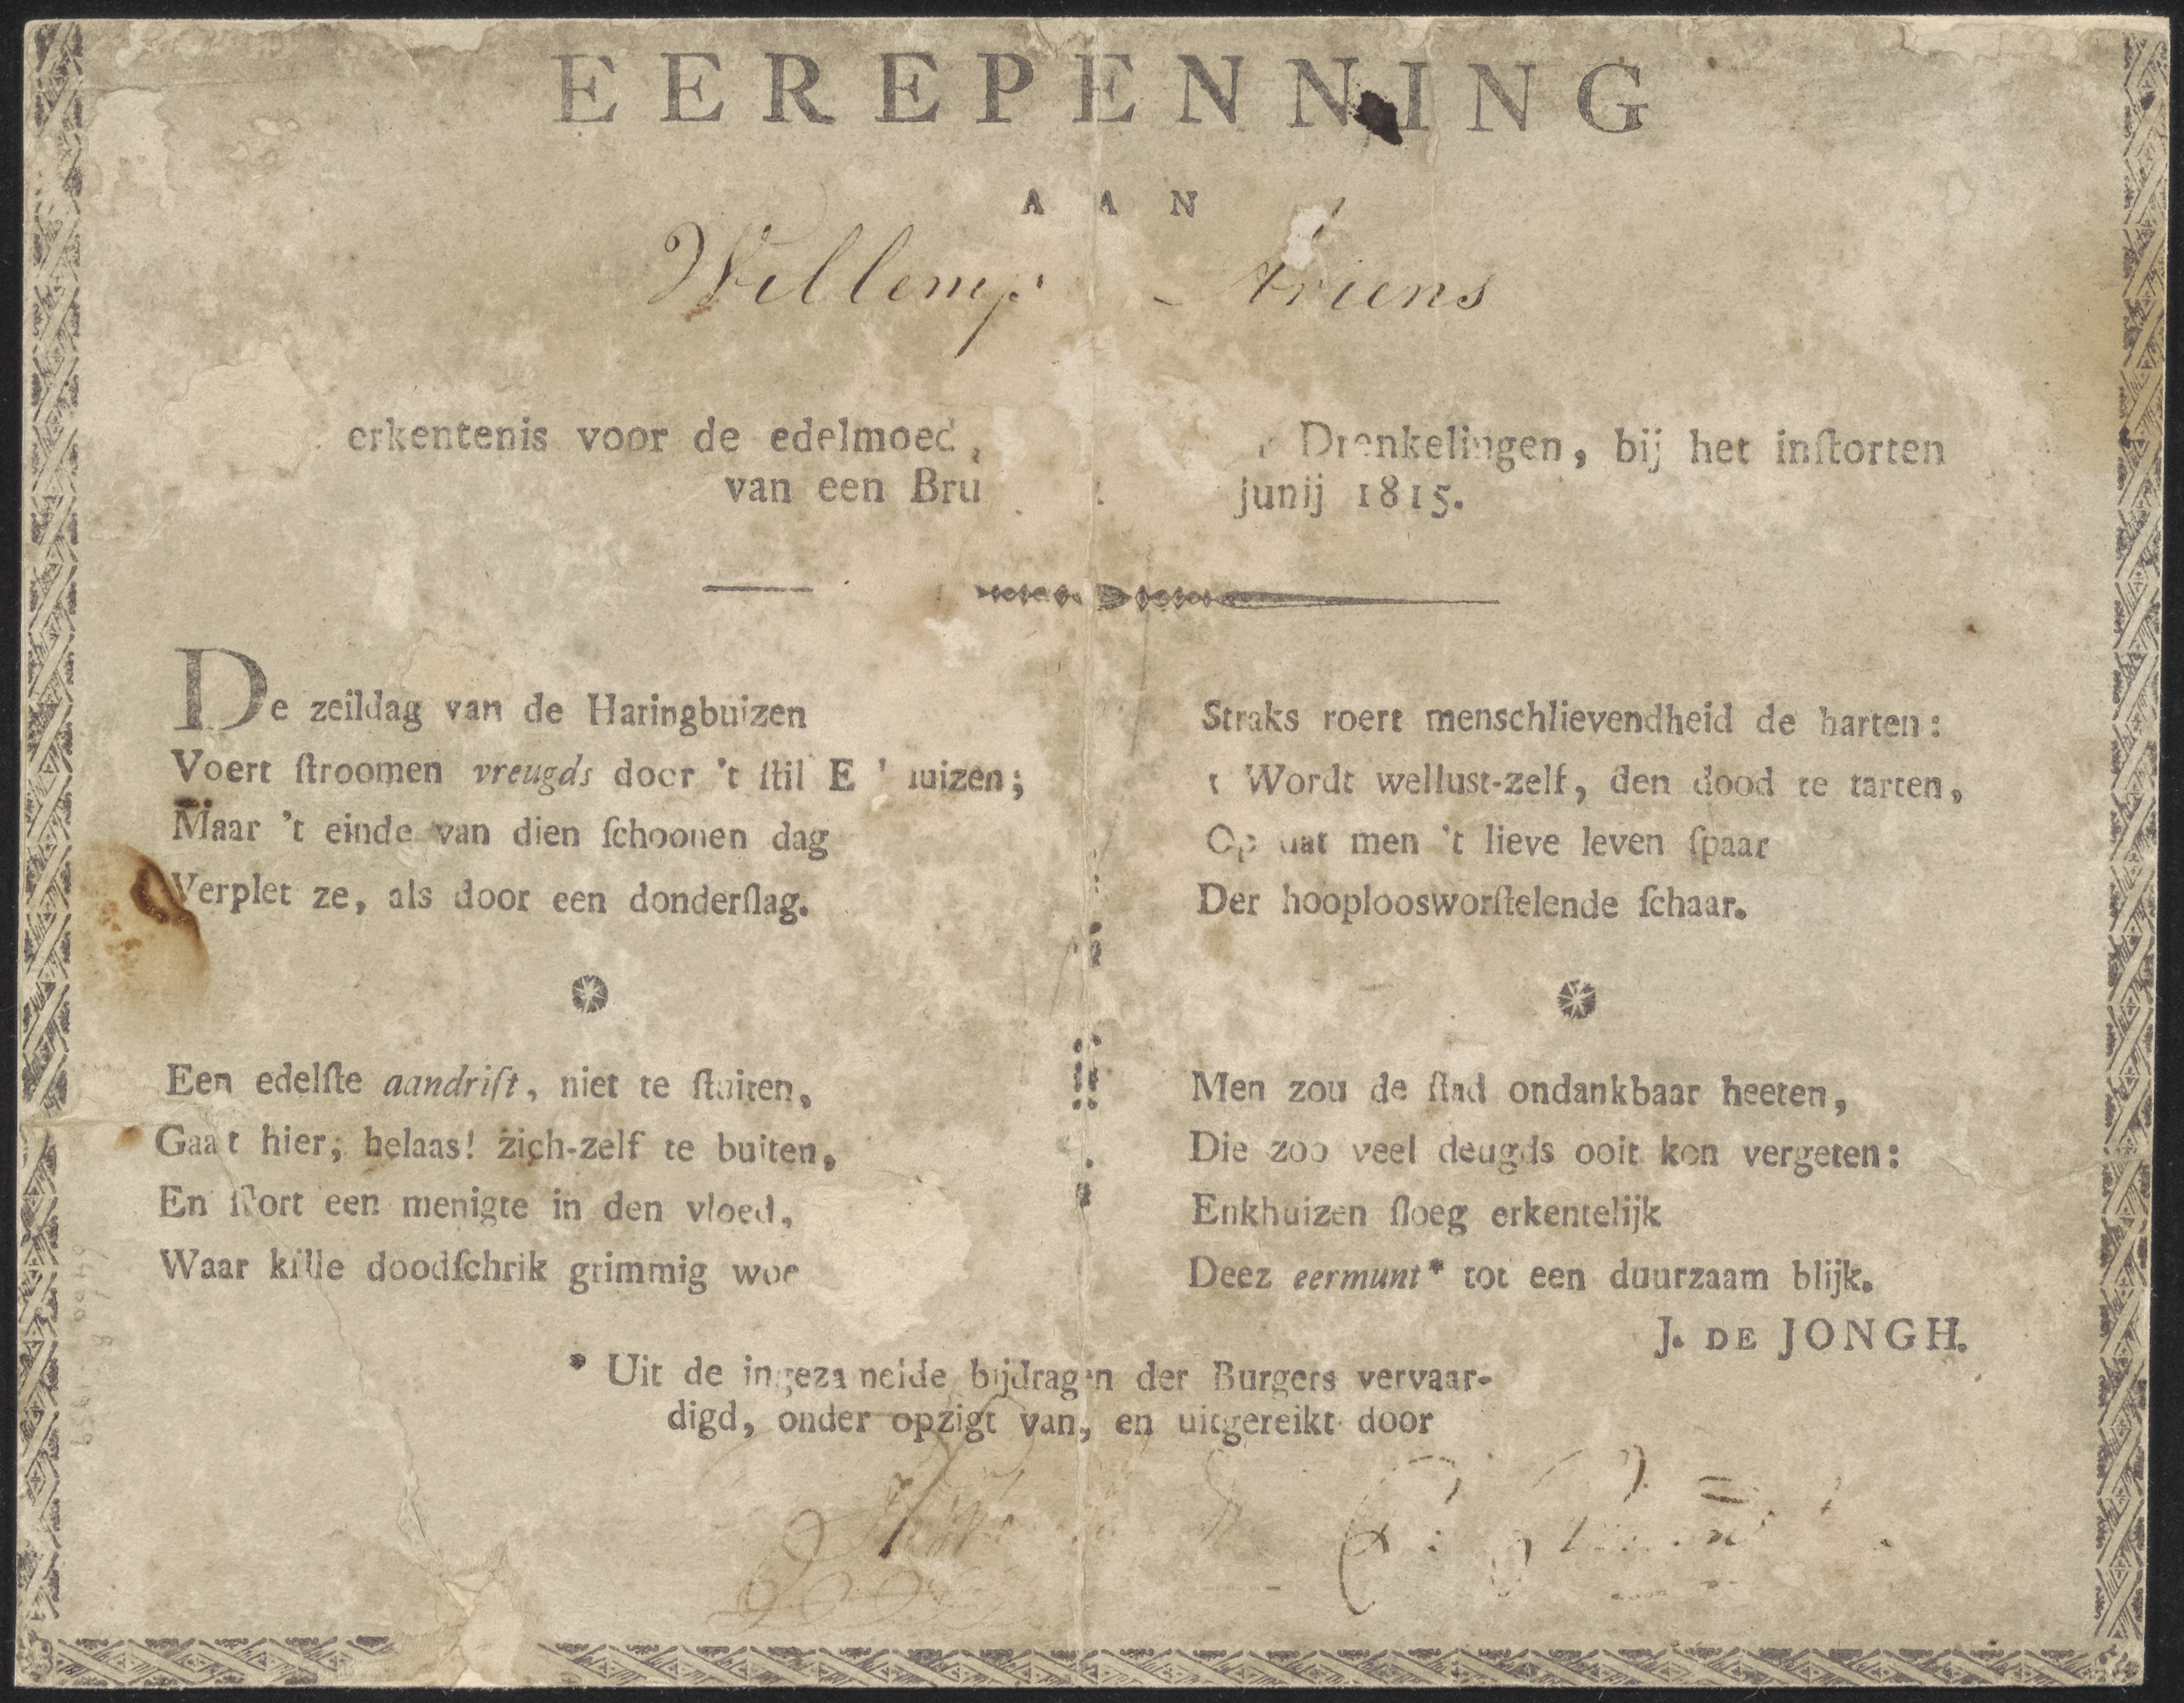 EEREPENNING
AAN
Willem Ariens
erkentenis voor de Drenkelingen, bij het inſtorten
van een junij 1815.
De zeildag van de Haringbuizen
Voert ſtroomen vreugds door 't ſtil
Maar 't einde van dien ſchoonen dag
Verplet ze, als door een donderſlag.
Een edelſte aandrift, niet te ſtuiten,
Gaat hier, helaas! zich-zelf te buiten,
En ſtort een menigte in den vloed,
Waar kille doodſchrik grimmig
Straks roert menschlievendheid de harten:
't Wordt wellust-zelf, den dood te tarten,
Op dat men 't lieve leven ſpaar
Der hooploosworſtelende ſchaar.
Men zou de ſtad ondankbaar heeten,
Die zoo veel deugds ooit kon vergeten:
Enkhuizen ſloeg erkentelijk
Deez eermunt* tot een duurzaam blijk.
J. DE JONGH.
* Uit de ingezamelde bijdragen der Burgers vervaar-
digd, onder opzigt van, en uitgereikt door